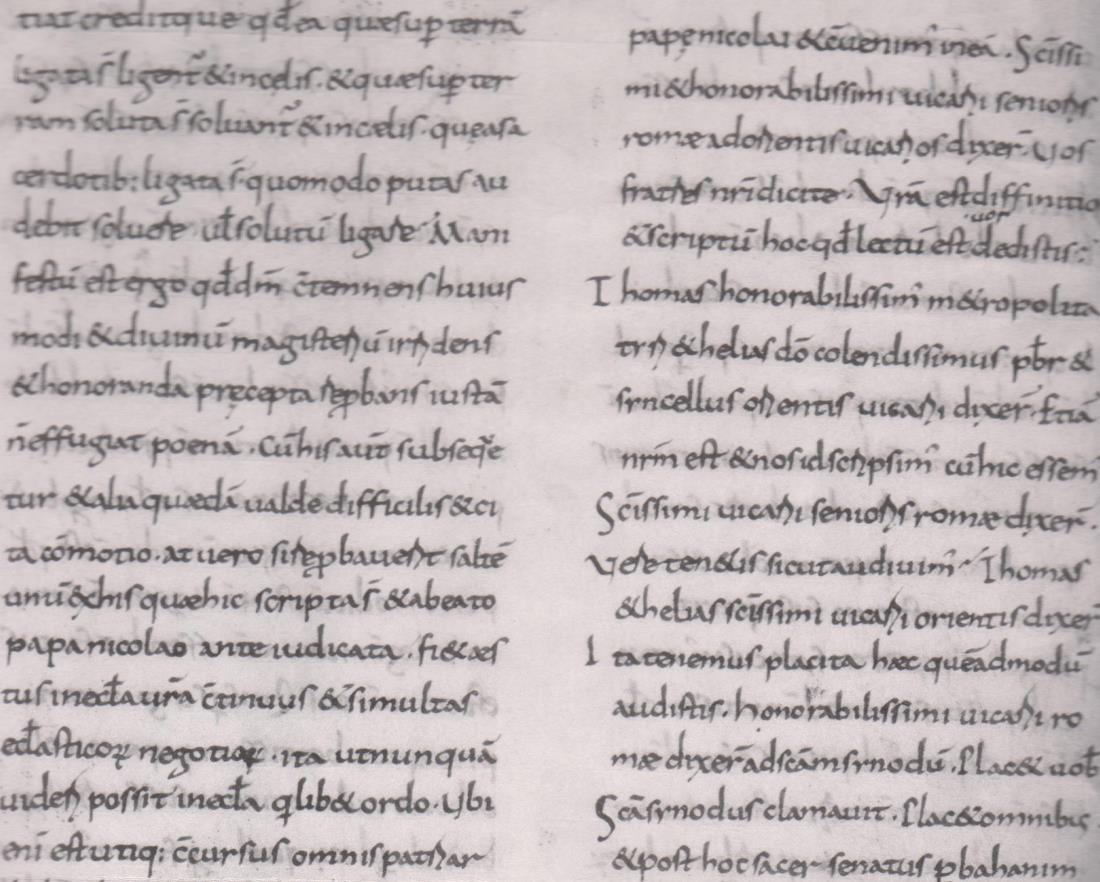 tiat creditque qđ ea quæ sup̱ terrā
ligata s̄ ligent̃ & in celis. & quæ sup̱ ter
ram soluta s̄ soluant̃ & in cælis. que a sa
cerdotib: ligata s̄. quomodo putas au
debit soluere uł solutū ligare. Mani
festū est ergo qđ dm̄ c̄temnens huius
modi & diuinū magisteriū irridens
& honoranda pręcepta rep̱bans iustā
n̄ effugiat poenā. Cū his aut̄ subseq̃re
tur & alia quædā ualde difficilis & ci
ta cōmotio. at uero si rep̱bauerit saltē
unū ex his quæ hic scripta s̄ & a beato
papa nicolao ante iudicata. fi& æs
tus in eccła ur̄a c̄tinuus & simultas
eccłasticoꝝ negotioꝝ. ita ut nunquā
uideri possit in eccła qlib& ordo. Ubi
eni est utiq: c̄cursus omnis patriar
papę nicolai & c̄uenim̄ in ea. Sc̄issi
mi & honorabilissimi uicarii senioris
romæ ad orientis uicarios dixer̄. Uos
fratres nr̄i dicite. Ur̄a est diffinitio
& scriptū hoc qđ lectū est. uor dedistis:
Thomas honorabilissim̄ m&ropolita
tyri & helias dō colendissimus pb̄r &
syncellus orientis uicarii dixer̄. Etiā
nr̄m est & nos id scripsim̄ cū hic essem̄
Sc̄issimi uicarii senioris romæ dixer̄.
Vere ten&is sicut audiuim̄. Thomas
& helias sc̄issimi uicarii orientis dixer̄
Ita tenemus placita hæc quēadmodū
audistis. honorabilissimi uicarii ro
mæ dixer̄ ad sc̄am synodū. Plac& uob̄
Sc̄a synodus clamauit. Plac& omnibus
& post hoc sacer senatus p bahanim